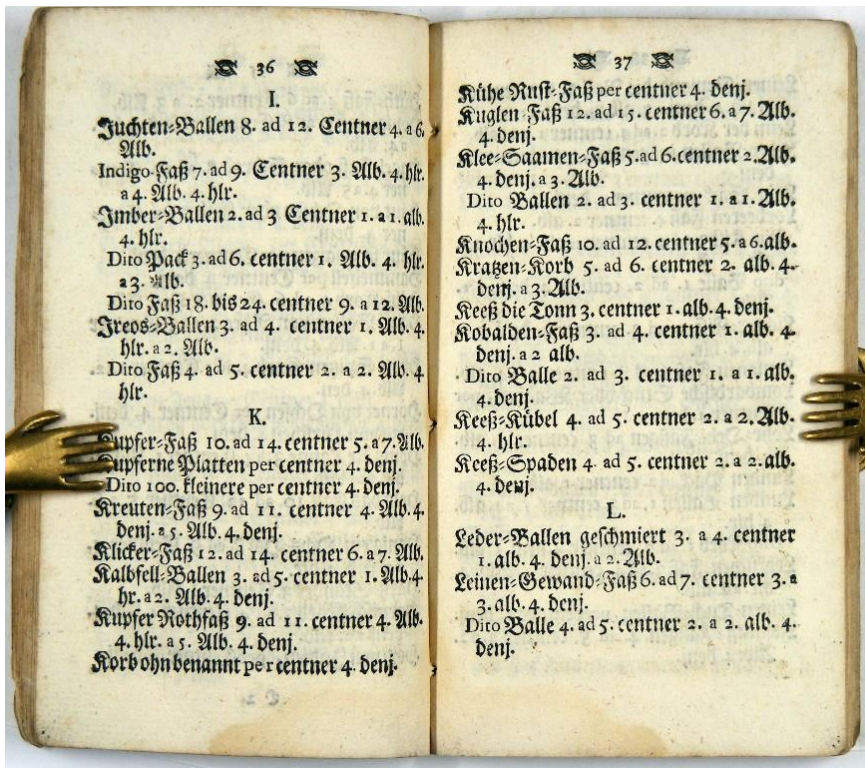 36
I.
Juchten-Ballen 8. ad 12. Centner 4. a 6.
Alb.
Indigo-Faß 7. ad 9. Centner 3. Alb. 4. hlr.
a 4. Alb. 4. hlr.
Imber-Ballen 2. ad 3 Centner 1. a 1. alb.
4. hlr.
Dito Pack 3. ad 6. centner 1. Alb. 4. hlr.
a 3. Alb.
Dito Faß 18. bis 24. centner 9. a 12. Alb.
Ireos-Ballen 3. ad 4. centner 1. Alb. 4.
hlr. a 2. Alb.
Dito Faß 4. ad 5. centner 2. a 2. Alb. 4
hlr.
K.
Kupfer-Faß 10. ad 14. centner 5. a 7. Alb.
Kupferne Platten per centner 4. denj.
Dito 100. kleinere per centner 4. denj.
Kreuten-Faß 9. ad 11. centner 4. Alb. 4.
denj. a 5. Alb. 4. denj.
Klicker-Faß 12. ad 14. centner 6. a 7. Alb.
Kalbfell-Ballen 3. ad 5. centner 1. Alb. 4.
hr. a 2. Alb. 4. denj.
Kupfer Rothfaß 9. ad 11. centner 4. Alb.
4. hlr. a 5. Alb. 4. denj.
Korb ohn benannt per centner 4. denj.
37
Kühe Rust-Faß per centner 4. denj.
Kuglen-Faß 12. ad 15. centner 6. a 7. Alb.
4. denj.
Klee-Saamen-Faß 5. ad 6. centner 2. Alb.
4. denj. a 3. Alb.
Dito Ballen 2. ad 3. centner 1. a 1. Alb.
4. hlr.
Knochen-Faß 10. ad 12. centner 5. a 6. alb.
Kratzen-Korb 5. ad 6. centner 2. alb. 4.
denj. a 3. Alb.
Keeß die Tonn 3. centner 1. alb. 4. denj.
Kobalden-Faß 3. ad 4. centner 1. alb. 4.
denj. a 2 alb.
Dito Balle 2. ad 3. centner 1. a 1. alb.
4. denj.
Keeß-Kübel 4. ad 5. centner 2. a 2. Alb.
4. hlr.
Keeß-Spaden 4. ad 5. centner 2. a 2. alb.
4. denj.
L.
Leder-Ballen geschmiert 3. a 4. centner
1. alb. 4. denj. a 2. Alb.
Leinen-Gewand-Faß 6. ad 7. centner 3. a
3. alb. 4. denj.
Dito Balle 4. ad 5. centner 2. a 2. alb. 4.
denj.